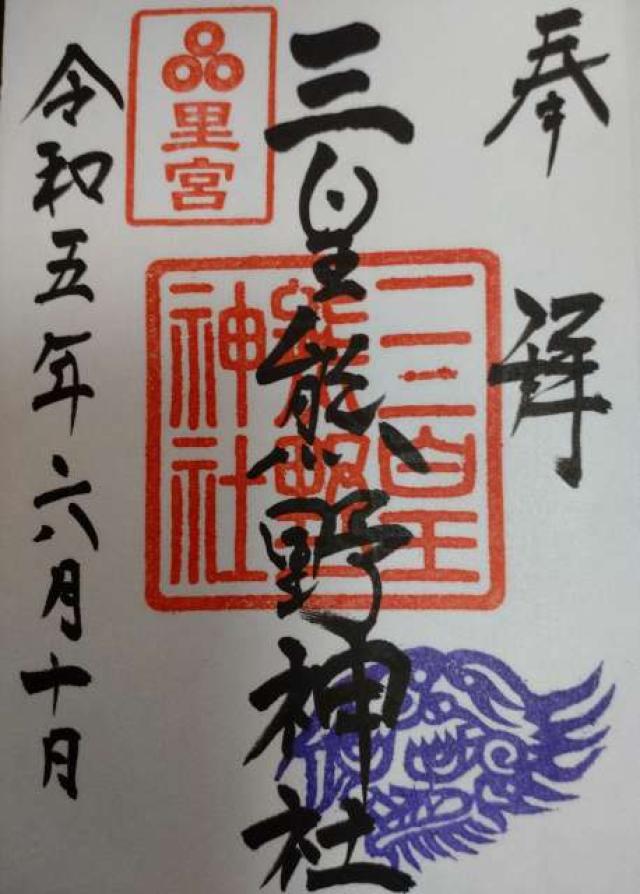 奉拝
三皇熊野神社
三皇熊野神社
里宮
令和五年六月十日